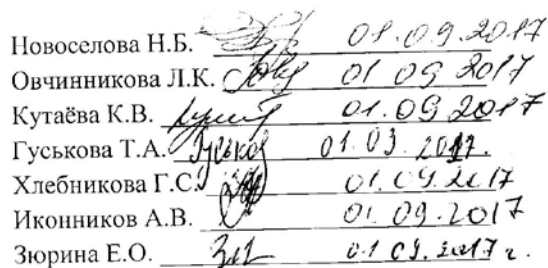 Новоселова Н.Б. 01.09.2017
Овчинникова Л.К. 01 09 2017
Кутаёва К.В. 01.09 2017
Гуськова Т.А. Гуськов 01.09. 2017.
Хлебникова Г.С. 01.09.2017
Иконников А.В. 01.09.2017
Зюрина Е.О. 01 09.2017 г.